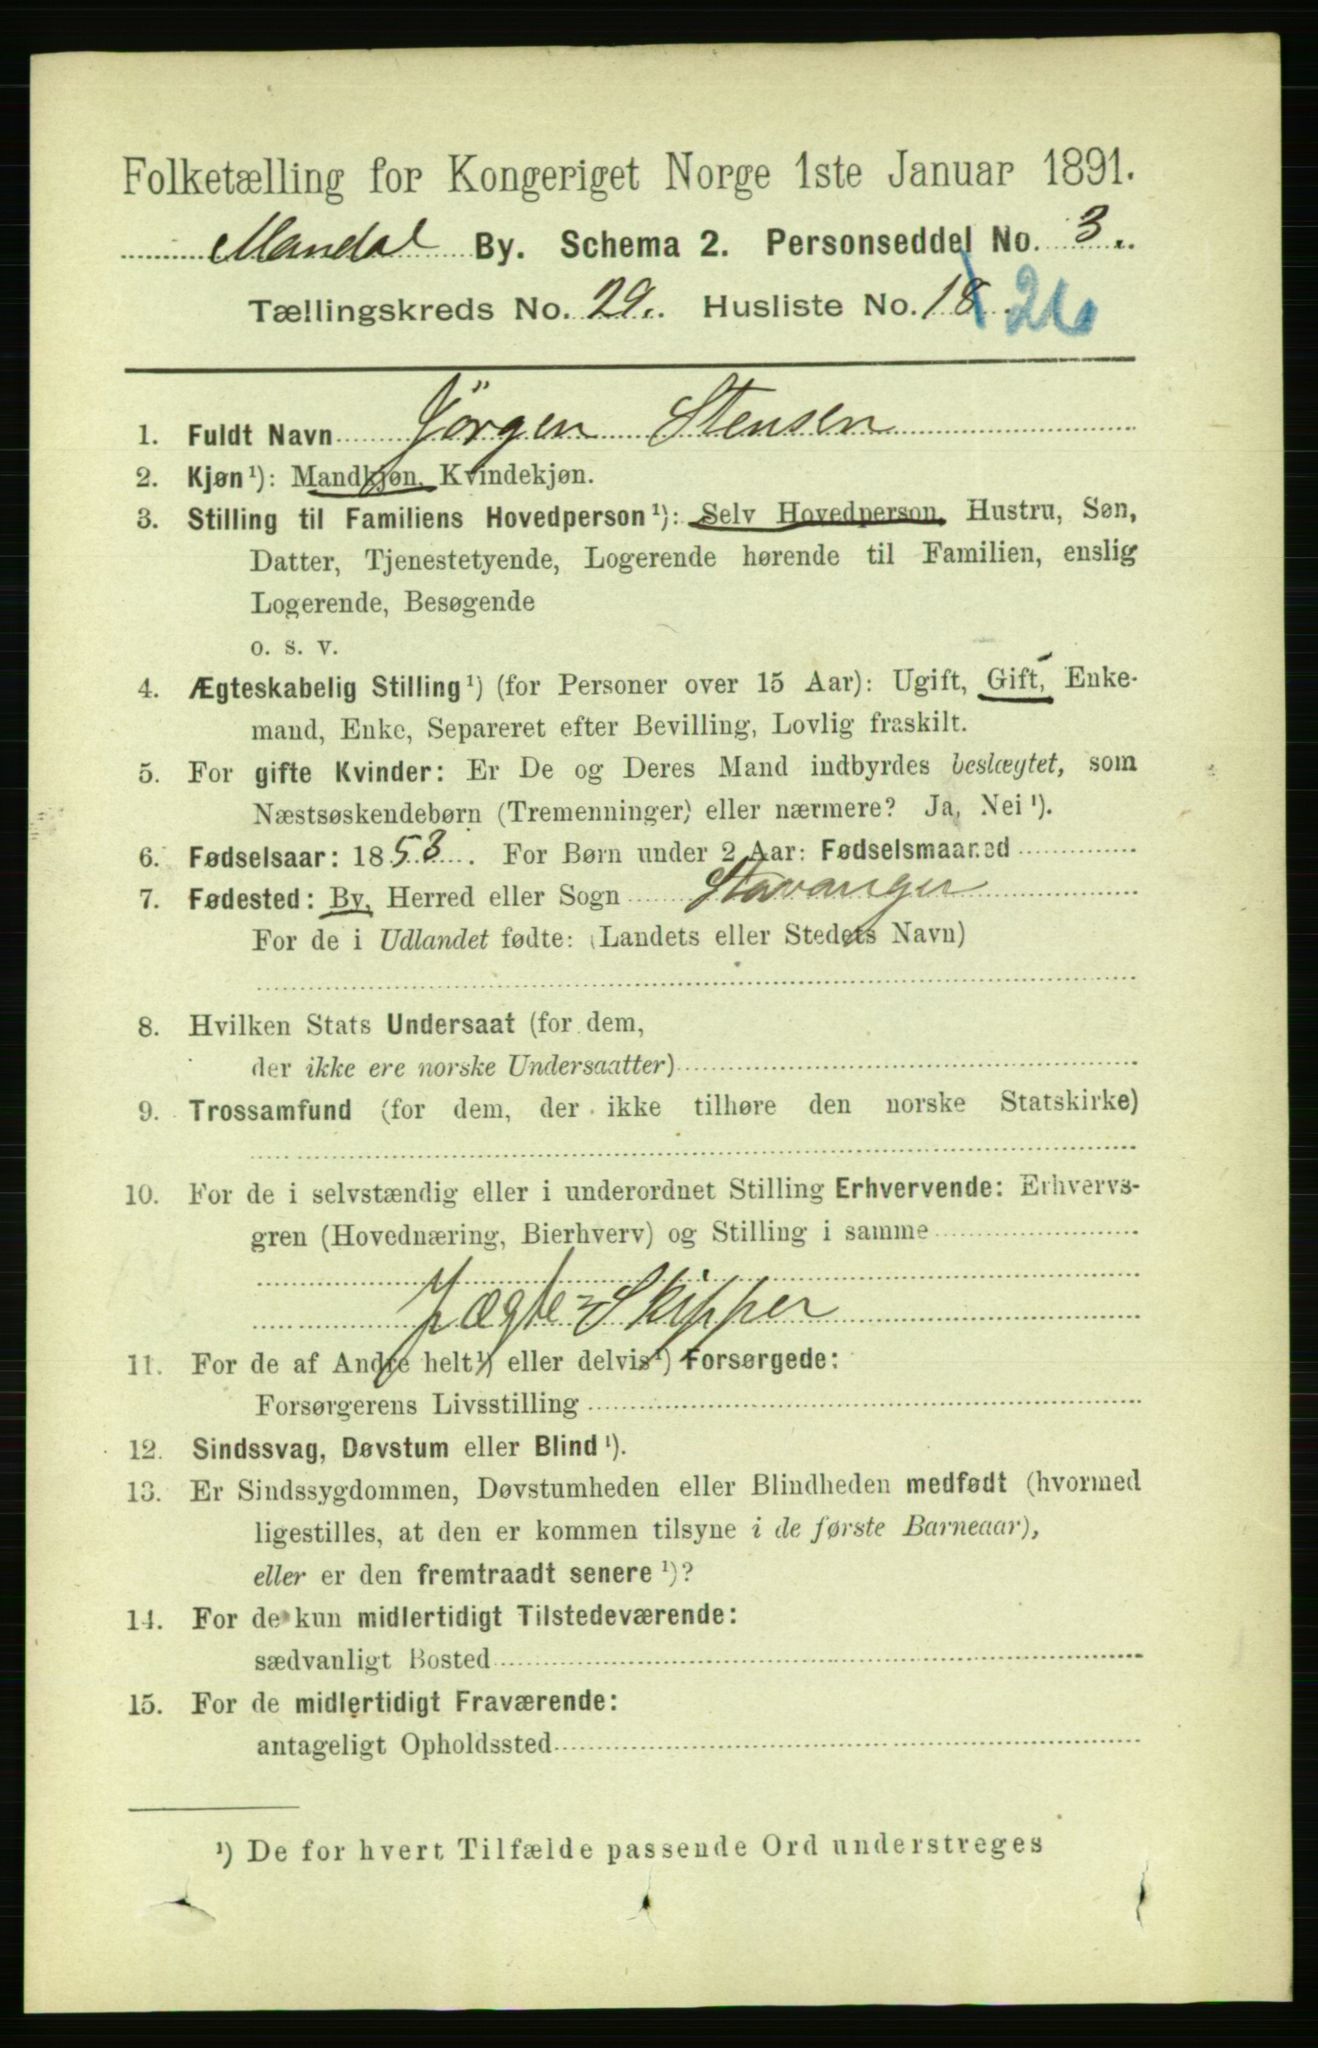 Folketælling for Kongeriget Norge 1ste Januar 1891.
Mandal By. Schema 2. Personseddel No. 3.
Tællingskreds No. 29. Husliste No. 18 26
1. Fuldt Navn Jörgen Stensen
2. Kjøn¹): Mandkjøn, Kvindekjøn.
3. Stilling til Familiens Hovedperson¹): Selv Hovedperson, Hustru, Søn,
Datter, Tjenestetyende, Logerende hørende til Familien, enslig
Logerende, Besøgende
o. s. v.
4. Ægteskabelig Stilling¹) (for Personer over 15 Aar): Ugift, Gift, Enke-
mand, Enke, Separeret efter Bevilling, Lovlig fraskilt.
5. For gifte Kvinder: Er De og Deres Mand indbyrdes beslægtet, som
Næstsøskendebørn (Tremenninger) eller nærmere? Ja, Nei¹).
6. Fødselsaar: 1853. For Børn under 2 Aar: Fødselsmaaned
7. Fødested: By, Herred eller Sogn Stavanger
For de i Udlandet fødte: (Landets eller Stedets Navn)
8. Hvilken Stats Undersaat (for dem,
der ikke ere norske Undersaatter)
9. Trossamfund (for dem, der ikke tilhøre den norske Statskirke)
10. For de i selvstændig eller i underordnet Stilling Erhvervende: Erhvervs-
gren (Hovednæring, Bierhverv) og Stilling i samme
Jægte=Skipper
11. For de af Andre helt¹) eller delvis¹) Forsørgede:
Forsørgerens Livsstilling
12. Sindssvag, Døvstum eller Blind¹).
13. Er Sindssygdommen, Døvstumheden eller Blindheden medfødt (hvormed
ligestilles, at den er kommen tilsyne i de første Barneaar),
eller er den fremtraadt senere¹)?
14. For de kun midlertidigt Tilstedeværende:
sædvanligt Bosted
15. For de midlertidigt Fraværende:
antageligt Opholdssted
¹) De for hvert Tilfælde passende Ord understreges